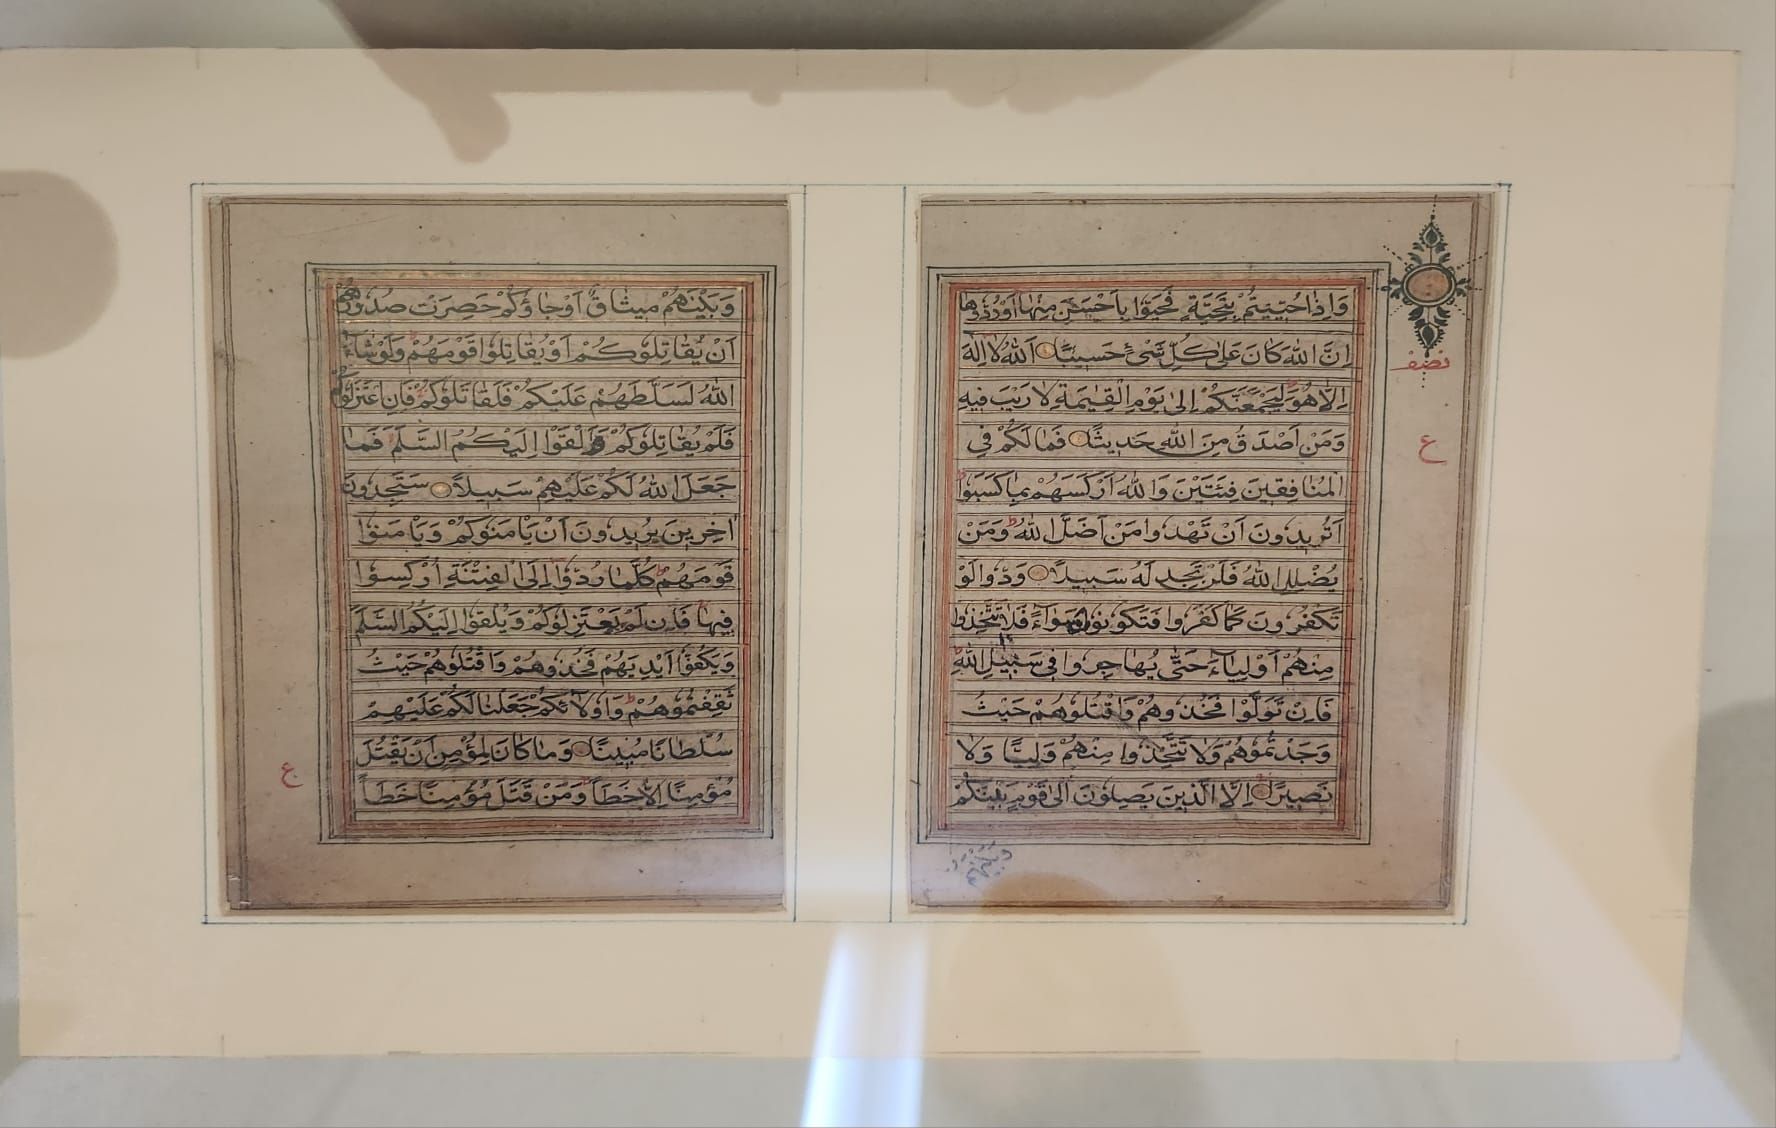 وَاِذَا حُيِّيتُمْ بِتَحِيَّةٍ فَحَيُّوا بِاَحْسَنَ مِنْهَا اَوْ رُدُّوهَا
اِنَّ اللهَ كَانَ عَلٰى كُلِّ شَیْءٍ حَسِيبًا اَللهُ لَا اِلٰهَ
اِلَّا هُوَ لَيَجْمَعَنَّكُمْ اِلٰى يَوْمِ الْقِيٰمَةِ لَا رَيْبَ فِيهِ
وَمَنْ اَصْدَقُ مِنَ اللهِ حَدِيثًا فَمَا لَكُمْ فِي
الْمُنَافِقِينَ فِئَتَيْنِ وَاللهُ اَرْكَسَهُمْ بِمَا كَسَبُوا
اَتُرِيدُونَ اَنْ تَهْدُوا مَنْ اَضَلَّ اللهُ وَمَنْ
يُضْلِلِ اللهُ فَلَنْ تَجِدَ لَهُ سَبِيلًا وَدُّوا لَوْ
تَكْفُرُونَ كَمَا كَفَرُوا فَتَكُونُونَ سَوَآءً فَلَا تَتَّخِذُوا
مِنْهُمْ اَوْلِيَآءَ حَتّٰى يُهَاجِرُوا فِي سَبِيلِ اللهِ
فَاِنْ تَوَلَّوْا فَخُذُوهُمْ وَاقْتُلُوهُمْ حَيْثُ
وَجَدْتُمُوهُمْ وَلَا تَتَّخِذُوا مِنْهُمْ وَلِيًّا وَلَا
نَصِيرًا اِلَّا الَّذِينَ يَصِلُونَ اِلٰى قَوْمٍ بَيْنَكُمْ
نصف
ع
وَبَيْنَهُمْ مِيثَاقٌ اَوْ جَاؤُكُمْ حَصِرَتْ صُدُورُهُمْ
اَنْ يُقَاتِلُوكُمْ اَوْ يُقَاتِلُوا قَوْمَهُمْ وَلَوْ شَآءَ
اللهُ لَسَلَّطَهُمْ عَلَيْكُمْ فَلَقَاتَلُوكُمْ فَاِنِ اعْتَزَلُوكُمْ
فَلَمْ يُقَاتِلُوكُمْ وَاَلْقَوْا اِلَيْكُمُ السَّلَمَ فَمَا
جَعَلَ اللهُ لَكُمْ عَلَيْهِمْ سَبِيلًا سَتَجِدُونَ
اٰخَرِينَ يُرِيدُونَ اَنْ يَاْمَنُوكُمْ وَيَاْمَنُوا
قَوْمَهُمْ كُلَّمَا رُدُّوا اِلَى الْفِتْنَةِ اُرْكِسُوا
فِيهَا فَاِنْ لَمْ يَعْتَزِلُوكُمْ وَيُلْقُوا اِلَيْكُمُ السَّلَمَ
وَيَكُفُّوا اَيْدِيَهُمْ فَخُذُوهُمْ وَاقْتُلُوهُمْ حَيْثُ
ثَقِفْتُمُوهُمْ وَاُولٰٓئِكُمْ جَعَلْنَا لَكُمْ عَلَيْهِمْ
سُلْطَانًا مُبِينًا وَمَا كَانَ لِمُؤْمِنٍ اَنْ يَقْتُلَ
مُؤْمِنًا اِلَّا خَطَأً وَمَنْ قَتَلَ مُؤْمِنًا خَطَأً
ع